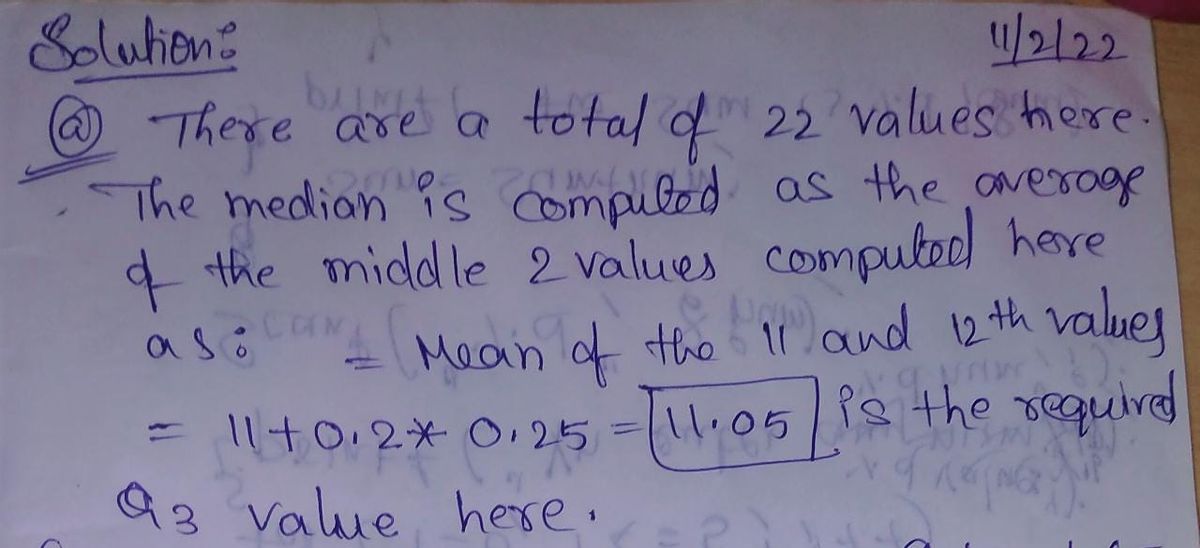 Solution:
11/2/22
(a) There are a total of 22 values here.
The median is computed as the average
of the middle 2 values computed here
as: = Mean of the 11 and 12th values
= 11+0.2* 0.25 = 11.05 is the required
Q3 value here.